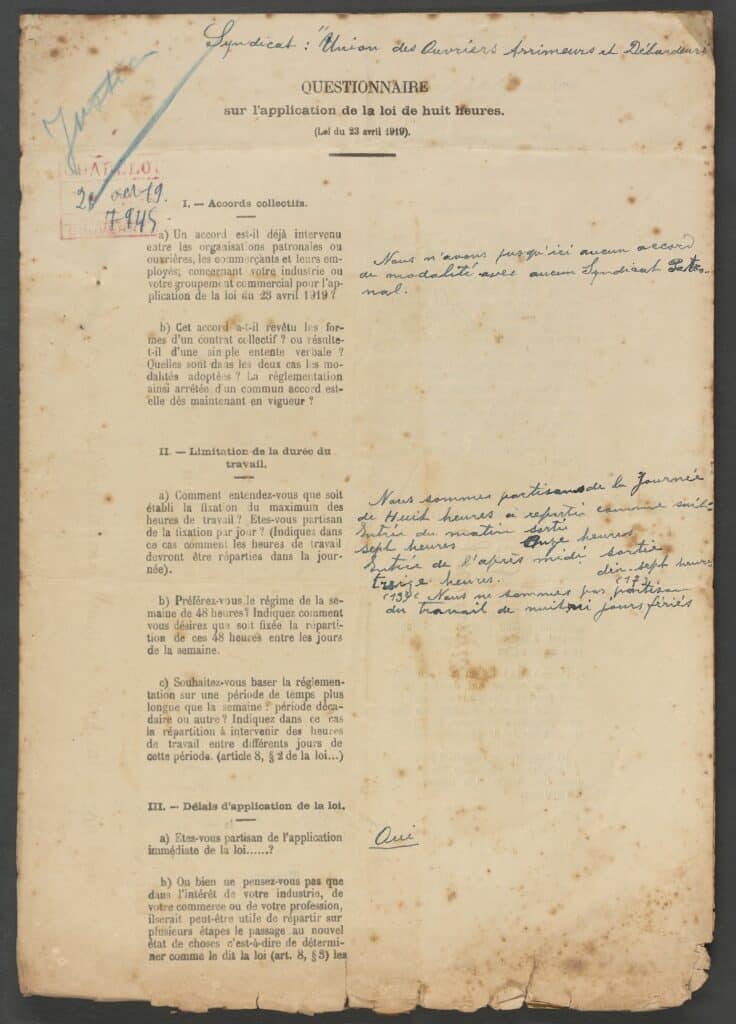 Syndicat : "Union des Ouvriers Arrimeurs et Débardeurs
QUESTIONNAIRE
sur l'application de la loi de huit heures.
(Loi du 23 avril 1919).
7945
I. — Accords collectifs.
a) Un accord est-il déjà intervenu
entre les organisations patronales ou
ouvrières, les commerçants et leurs em-
ployés; concernant votre industrie ou
votre groupement commercial pour l'ap-
plication de la loi du 23 avril 1919 ?
Nous n'avons jusqu'ici aucun accord
de modalité avec aucun Syndicat Patro-
nal.
b) Cet accord a-t-il revêtu les for-
mes d'un contrat collectif ? ou résulte-
t-il d'une simple entente verbale ?
Quelles sont dans les deux cas les mo-
dalités adoptées ? La réglementation
ainsi arrêtée d'un commun accord est-
elle dès maintenant en vigueur ?
II. — Limitation de la durée du
travail.
a) Comment entendez-vous que soit
établi la fixation du maximum des
heures de travail ? Etes-vous partisan
de la fixation par jour ? (Indiquez dans
ce cas comment les heures de travail
devront être réparties dans la jour-
née).
Nous sommes partisans de la Journée
de Huit heures à répartir comme suit-
Entrée du matin sortie
sept heures Onze heures
Entrée de l'après midi sortie
treize heures. dix-sept heures
(13h) (17h)
Nous ne sommes pas partisan
du travail de nuit ni jours fériés
b) Préférez-vous le régime de la se-
maine de 48 heures? Indiquez comment
vous désirez que soit fixée la réparti-
tion de ces 48 heures entre les jours
de la semaine.
c) Souhaitez-vous baser la réglemen-
tation sur une période de temps plus
longue que la semaine : période déca-
daire ou autre ? Indiquez dans ce cas
la répartition à intervenir des heures
de travail entre différents jours de
cette période. (article 8, § 2 de la loi...)
III. — Délais d'application de la loi.
a) Etes-vous partisan de l'application
immédiate de la loi......?
Oui
b) Ou bien ne pensez-vous pas que
dans l'intérêt de votre industrie, de
votre commerce ou de votre profession,
ilserait peut-être utile de répartir sur
plusieurs étapes le passage au nouvel
état de choses c'est-à-dire de détermi-
ner comme le dit la loi (art. 8, § 3) les